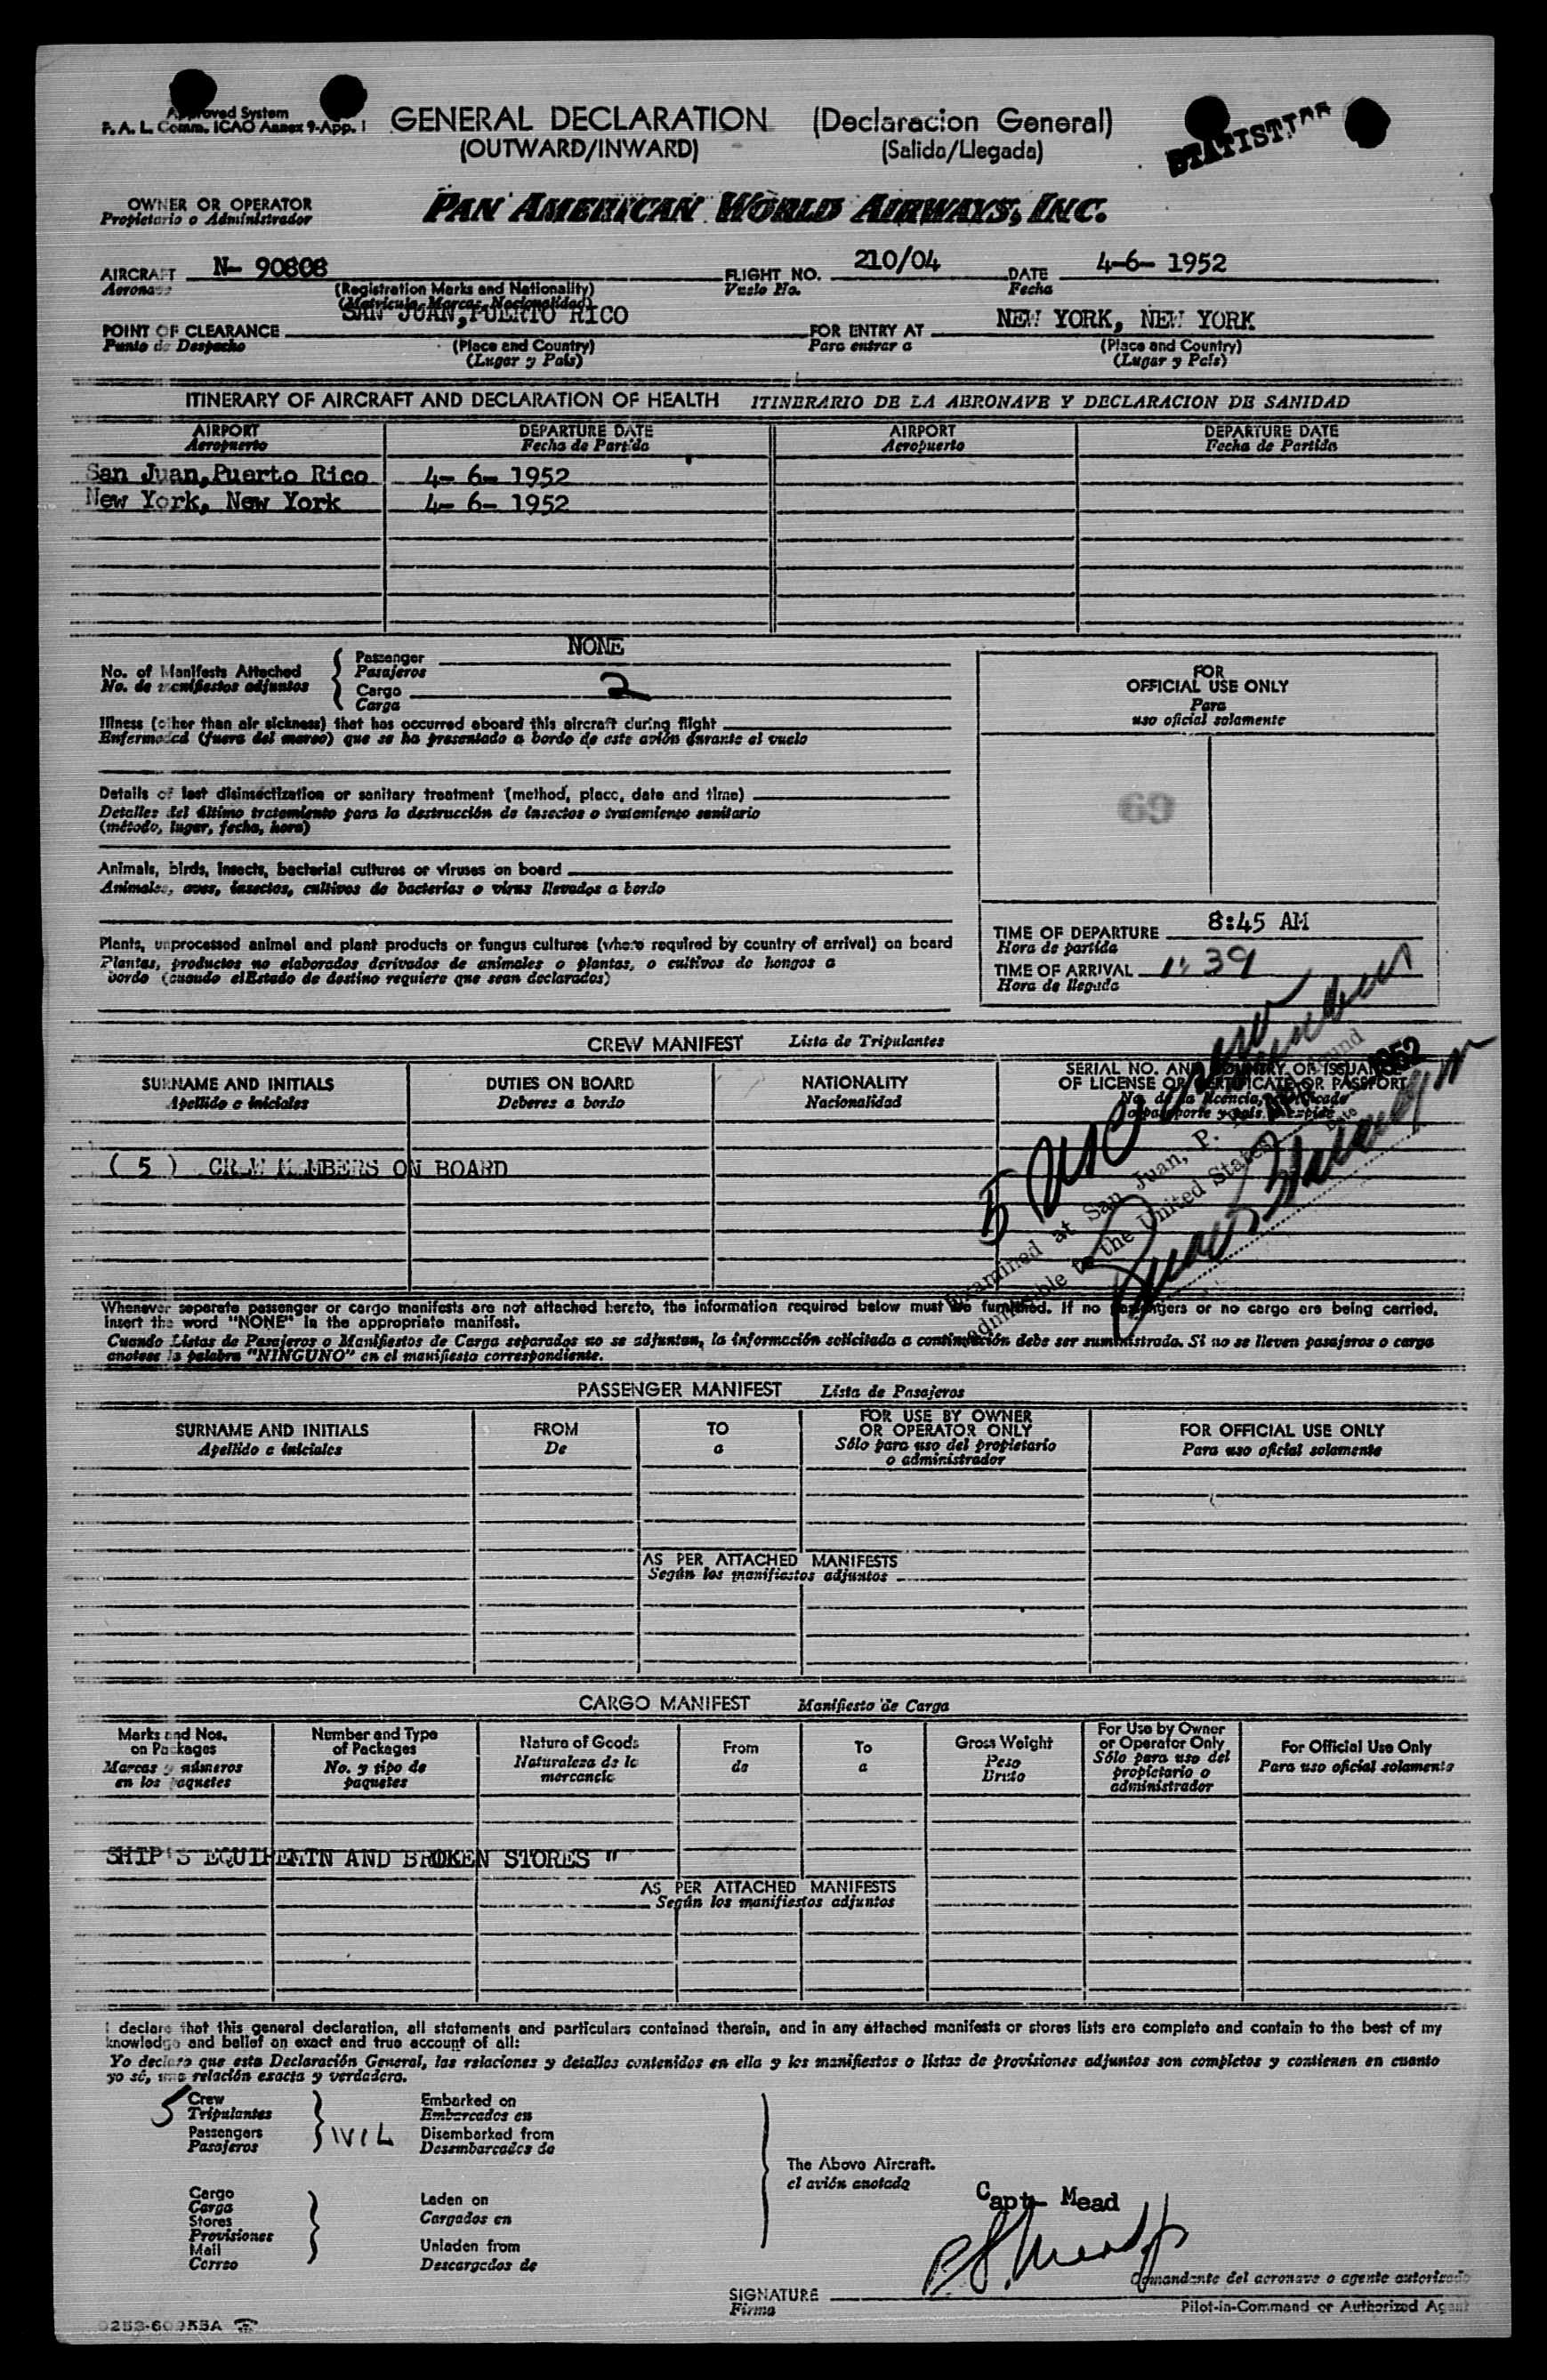 Approved System
F. A. L. Comm. ICAO Annex 9-App. I
GENERAL DECLARATION (Declaracion General)
(OUTWARD/INWARD) (Salida/Llegada)
OWNER OR OPERATOR
Propietario o Administrador
PAN AMERICAN WORLD AIRWAYS, INC.
AIRCRAFT N- 90808 FLIGHT NO. 210/04 DATE 4-6- 1952
Aeronave (Registration Marks and Nationality) Vuelo No. Fecha
(Matricula-Marcas-Nacionalidad)
SAN JUAN, PUERTO RICO NEW YORK, NEW YORK
POINT OF CLEARANCE FOR ENTRY AT
Punto de Despacho (Place and Country) Para entrar a (Place and Country)
(Lugar y País) (Lugar y País)
ITINERARY OF AIRCRAFT AND DECLARATION OF HEALTH ITINERARIO DE LA AERONAVE Y DECLARACION DE SANIDAD
AIRPORT DEPARTURE DATE AIRPORT DEPARTURE DATE
Aeropuerto Fecha de Partida Aeropuerto Fecha de Partida
San Juan, Puerto Rico 4- 6- 1952
New York, New York 4- 6- 1952
No. of Manifests Attached
No. de manifiestos adjuntos
Passenger NONE
Pasajeros
Cargo 2
Carga
Illness (other than air sickness) that has occurred aboard this aircraft during flight
Enfermedad (fuera del mareo) que se ha presentado a bordo de este avión durante el vuelo
Details of last disinsectization or sanitary treatment (method, place, date and time)
Detalles del último tratamiento para la destrucción de insectos o tratamiento sanitario
(método, lugar, fecha, hora)
Animals, birds, insects, bacterial cultures or viruses on board
Animales, aves, insectos, cultivos de bacterias o virus llevados a bordo
Plants, unprocessed animal and plant products or fungus cultures (where required by country of arrival) on board
Plantas, productos no elaborados derivados de animales o plantas, o cultivos de hongos a
bordo (cuando elEstado de destino requiere que sean declarados)
FOR
OFFICIAL USE ONLY
Para
uso oficial solamente
69
TIME OF DEPARTURE 8:45 AM
Hora de partida
TIME OF ARRIVAL 1:39
Hora de llegada
CREW MANIFEST Lista de Tripulantes
SURNAME AND INITIALS DUTIES ON BOARD NATIONALITY SERIAL NO. AND COUNTRY OF ISSUANCE
Apellido e iniciales Deberes a bordo Nacionalidad OF LICENSE OR CERTIFICATE OR PASSPORT
No. de la licencia, certificado
o pasaporte y país
( 5 ) CREW MEMBERS ON BOARD
5
Examined at San Juan, P.
Admissible to the United States
1952
Whenever separate passenger or cargo manifests are not attached hereto, the information required below must be furnished. If no passengers or no cargo are being carried,
insert the word "NONE" in the appropriate manifest.
Cuando Listas de Pasajeros o Manifiestos de Carga separados no se adjuntan, la información solicitada a continuación debe ser suministrada. Si no se lleven pasajeros o carga
anotese la palabra "NINGUNO" en el manifiesto correspondiente.
PASSENGER MANIFEST Lista de Pasajeros
SURNAME AND INITIALS FROM TO FOR USE BY OWNER OR OPERATOR ONLY FOR OFFICIAL USE ONLY
Apellido e iniciales De a Sólo para uso del propietario o administrador Para uso oficial solamente
AS PER ATTACHED MANIFESTS
Según los manifiestos adjuntos
CARGO MANIFEST Manifiesto de Carga
Marks and Nos. on Packages Number and Type of Packages Nature of Goods From To Gross Weight For Use by Owner or Operator Only For Official Use Only
Marcas y números en los paquetes No. y tipo de paquetes Naturaleza de la mercancía de a Peso Bruto Sólo para uso del propietario o administrador Para uso oficial solamente
SHIP'S EQUIPEMTN AND BROKEN STORES "
AS PER ATTACHED MANIFESTS
Según los manifiestos adjuntos
I declare that this general declaration, all statements and particulars contained therein, and in any attached manifests or stores lists are complete and contain to the best of my
knowledge and belief an exact and true account of all:
Yo declaro que esta Declaración General, las relaciones y detalles contenidos en ella y los manifiestos o listas de provisiones adjuntos son completos y contienen en cuanto
yo sé, una relación exacta y verdadera.
5 Crew Embarked on
Tripulantes Embarcados en
Passengers Disembarked from
Pasajeros Desembarcados de
The Above Aircraft.
el avión anotado
Cargo
Carga Laden on
Stores Cargados en
Provisiones
Mail Unladen from
Correo Descargados de
Capt- Mead
Comandante del aeronave o agente autorizado
SIGNATURE
Firma
Pilot-in-Command or Authorized Agent